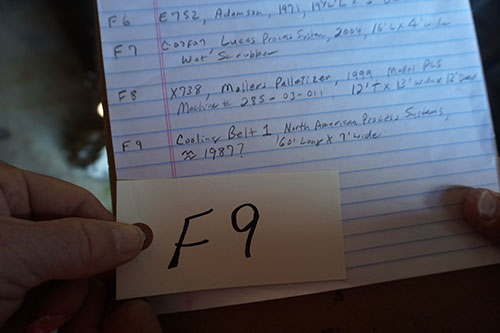 F6 E752, Adamson, 1971,
F7 C07F07 Lucas Process System, 2004, 16'L x 4' wide
Wet Scrubber
F8 X738, Mollers Palletizer, 1999, Model PLS
Machine # 285-03-011, 12'T x 13' wide x 12' Deep
F9 Cooling Belt 1 North American Process Systems,
≈ 1987? 160' Long x 7' wide
F9